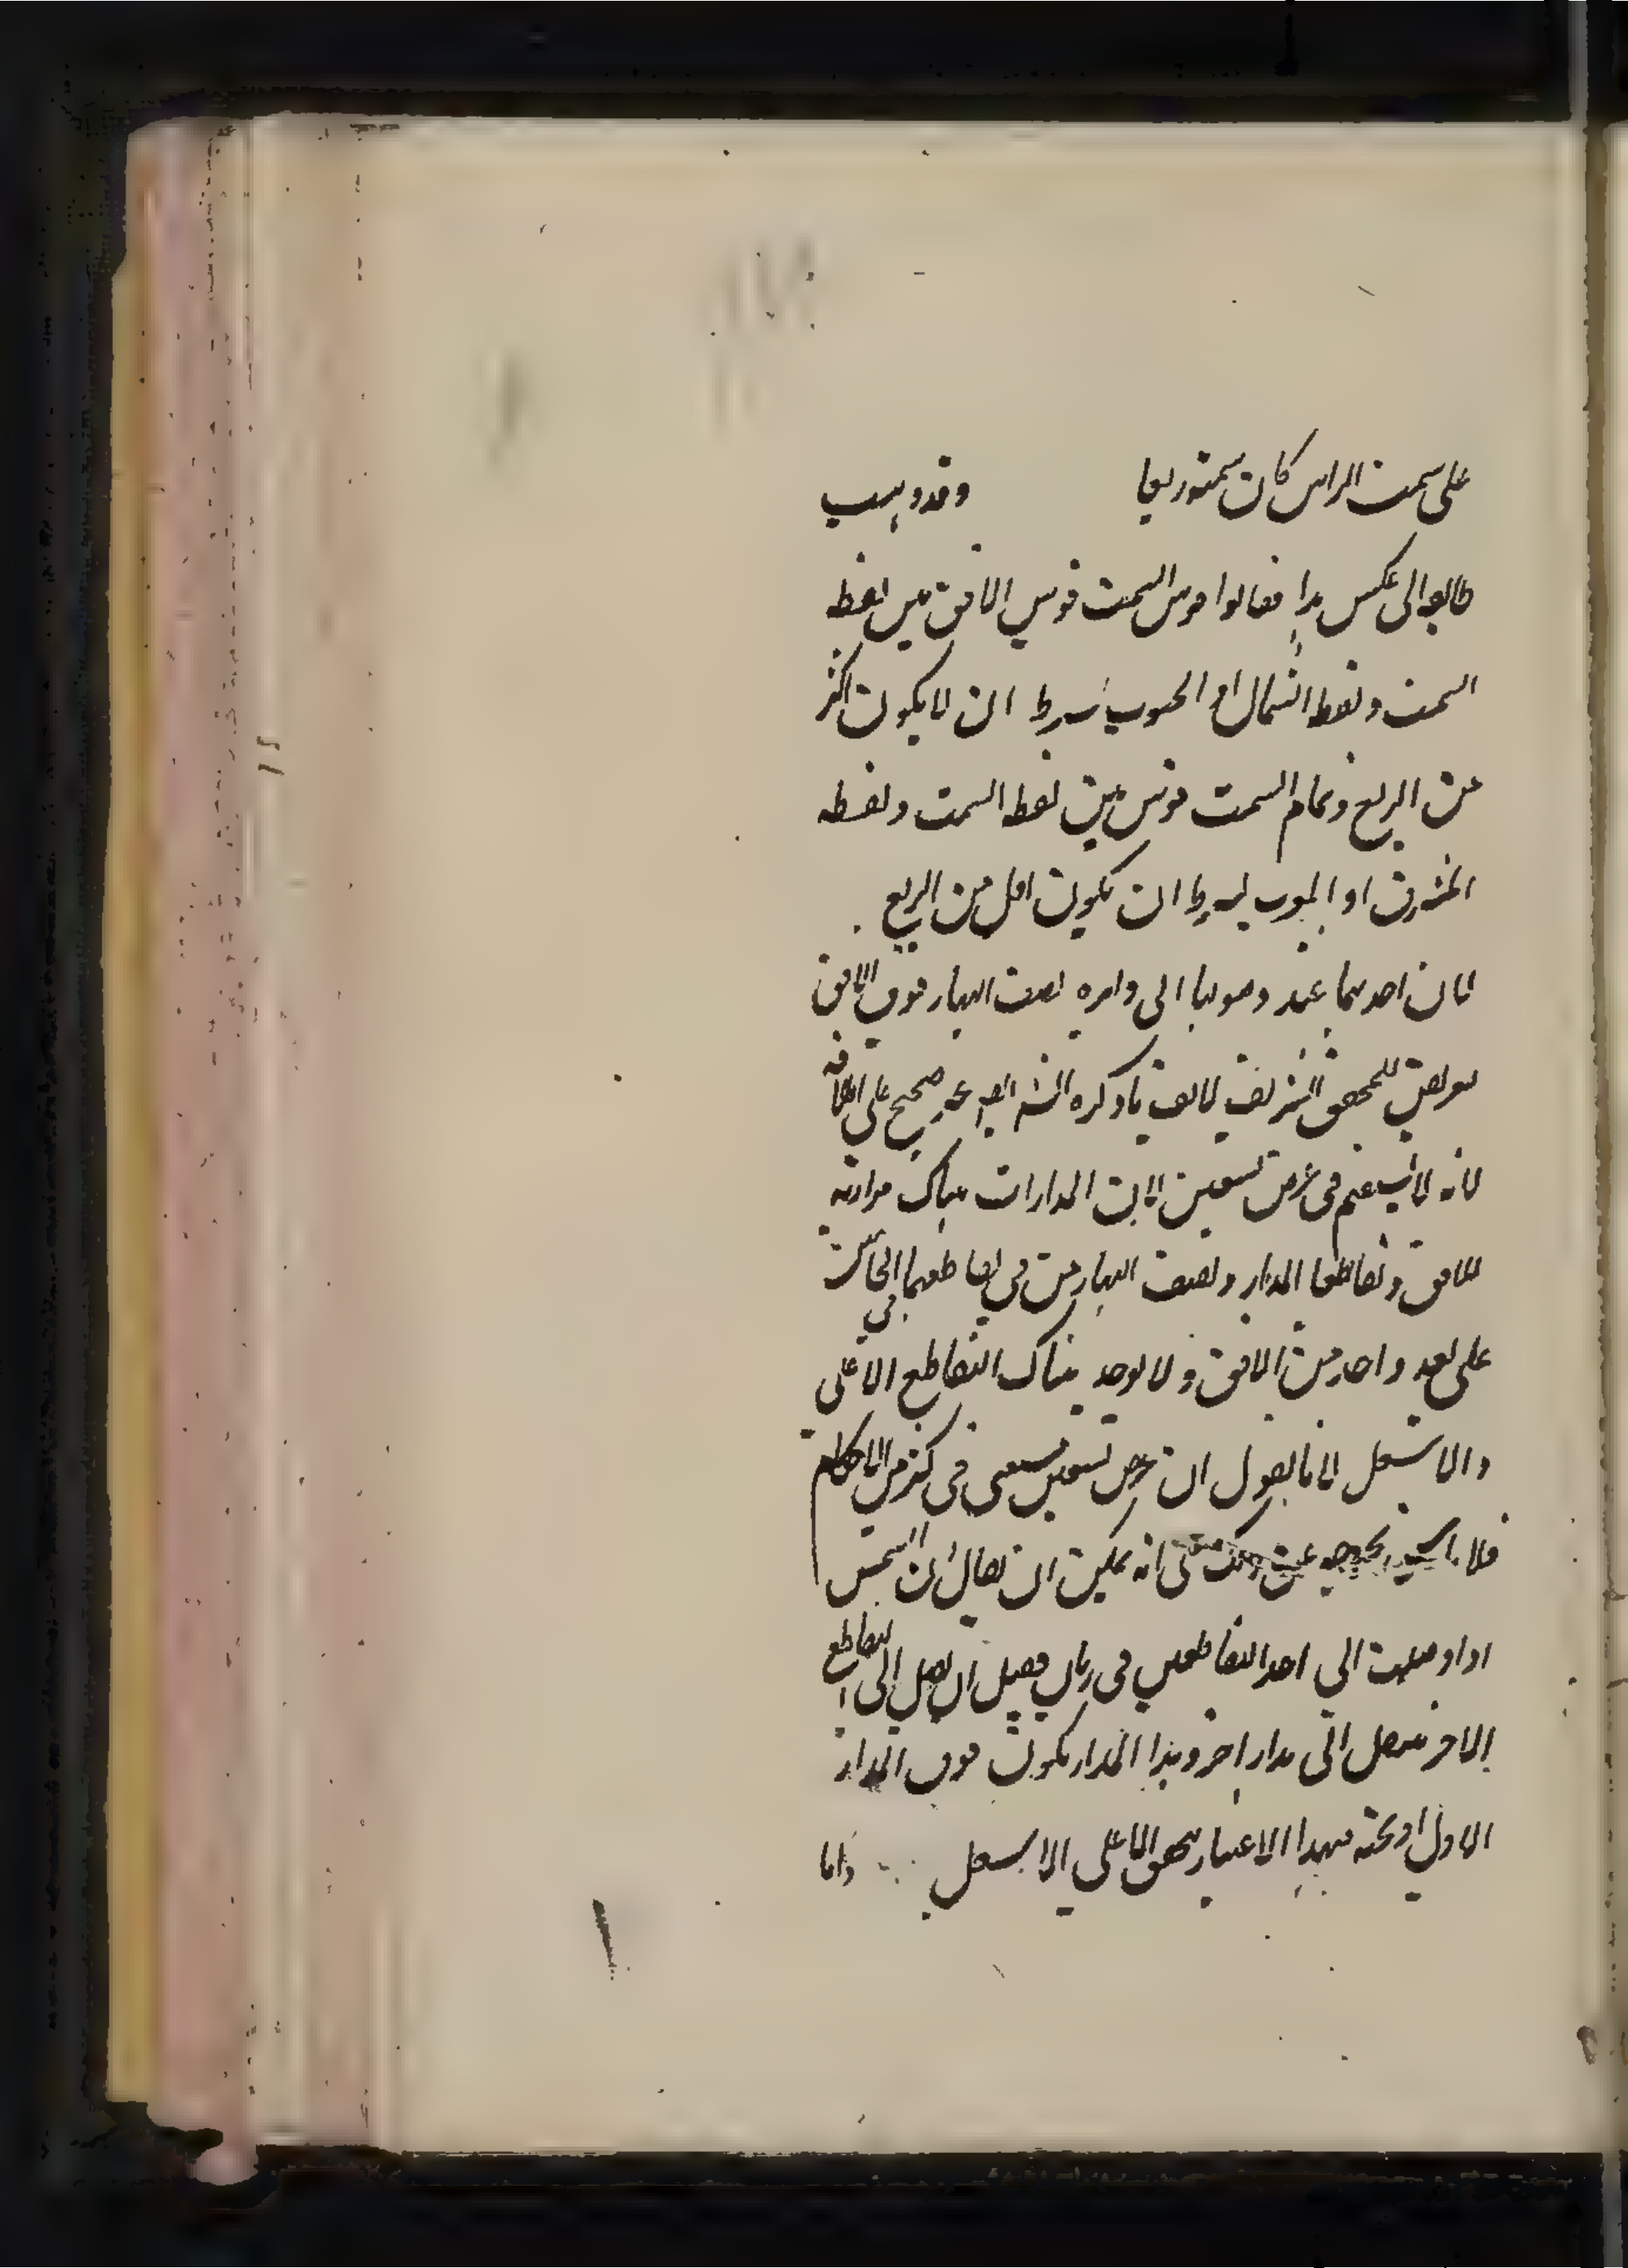 على سمت الراس كان سمته ربعا وقد ذهب
طائفة الى عكس هذا فقالوا قوس السمت قوس الافق بين نقطة
السمت ونقطة الشمال او الجنوب بشرط ان لا يكون اكثر
من الربع وتمام السمت قوس بين نقطة السمت ونقطة
المشرق او المغرب بشرط ان يكون اقل من الربع
لما ان احدهما عند وصولها الى دائرة نصف النهار فوق الافق
تعريض للمحقق الشريف لما ان ما ذكره الشه ايضا غير صحيح على اطلاقه
لانه لا يستقيم فى عرض تسعين لان المدارات هناك موازية
للافق وتقاطعا المدار ونصف النهار من فى تقاطعهما الجانبين
على بعد واحد من الافق و لا يوجد هناك التقاطع الاعلى
والاسفل لانا نقول ان عرض تسعين مستثنى فى كثير من الاحكام
فلا باس بخروجه عن ذلك على انه يمكن ان يقال ان الشمس
اذا وصلت الى احد التقاطعين فى زمان فقبل ان يصل الى التقاطع
الاخر ينتقل الى مدار اخر وهذا المدار يكون فوق المدار
الاول او تحته فبهذا الاعتبار يتحقق الاعلى الاسفل واما